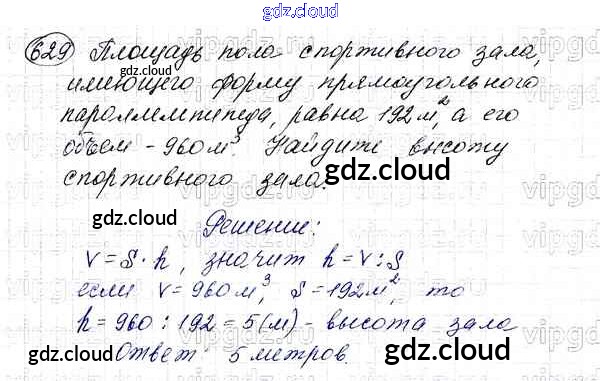 gdz.cloud
629 Площадь пола спортивного зала,
gdz.cloud
имеющего форму прямоугольного
параллелепипеда, равна 192 м², а его
объем - 960 м³. Найдите высоту
gdz.cloud
спортивного зала.
gdz.cloud
Решение:
V = S · h, значит h = V : S
если V = 960 м³, S = 192 м², то
gdz.cloud
gdz.cloud
h = 960 : 192 = 5 (м) - высота зала
Ответ 5 метров.
gdz.cloud
gdz.cloud